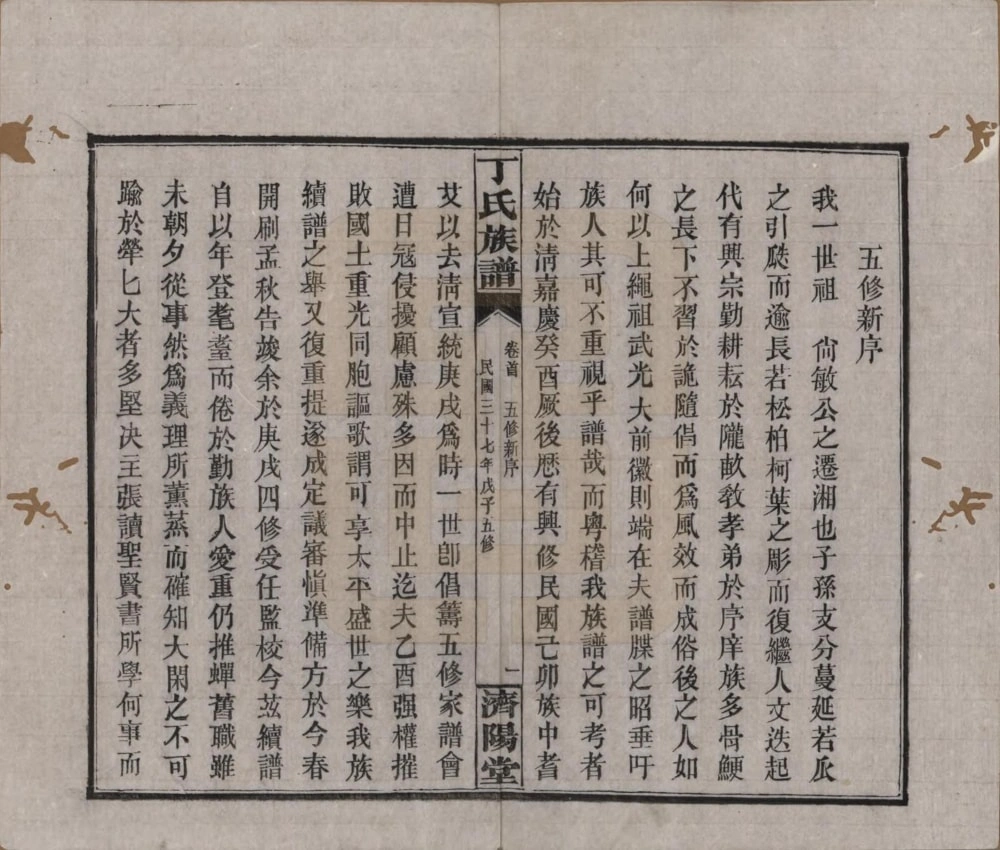 五修新序
我一世祖　尙敏公之遷湘也子孫支分蔓延若瓜
之引瓞而逾長若松柏柯葉之彫而復繼人文迭起
代有興宗勤耕耘於隴畝敎孝弟於序庠族多骨鯁
之長下不習於詭隨倡而爲風效而成俗後之人如
何以上繩祖武光大前徽則端在夫譜牒之昭垂吁
族人其可不重視乎譜哉而粤稽我族譜之可考者
始於淸嘉慶癸酉厥後歷有興修民國己卯族中耆
丁氏族譜
卷首　五修新序
民國三十七年戊子五修
一
濟陽堂
艾以去淸宣統庚戌爲時一世卽倡籌五修家譜會
遭日冦侵擾顧慮殊多因而中止迄夫乙酉强權摧
敗國土重光同胞謳歌謂可享太平盛世之樂我族
續譜之舉又復重提遂成定議審愼準備方於今春
開刷孟秋告竣余於庚戌四修受任監校今玆續譜
自以年登耄耋而倦於勤族人愛重仍推蟬舊職雖
未朝夕從事然爲義理所薰蒸而確知大閑之不可
踰於犖七大者多堅决主張讀聖賢書所學何事而